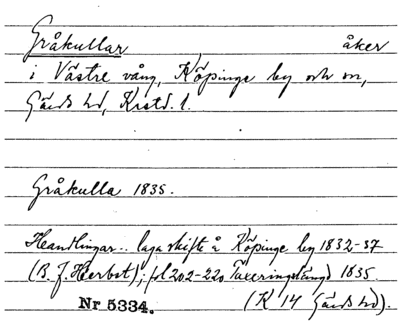 Gråkullar åker
i Västre vång, Köpinge by och sn,
Gärds hd, Kristd. l.
Gråkulla 1835.
Handlingar.. laga skifte å Köpinge by 1832-37
(B. J. Herbst); fol 202-220 Taxeringslängd 1835.
Nr 5334. (K 14 Gärds hd).